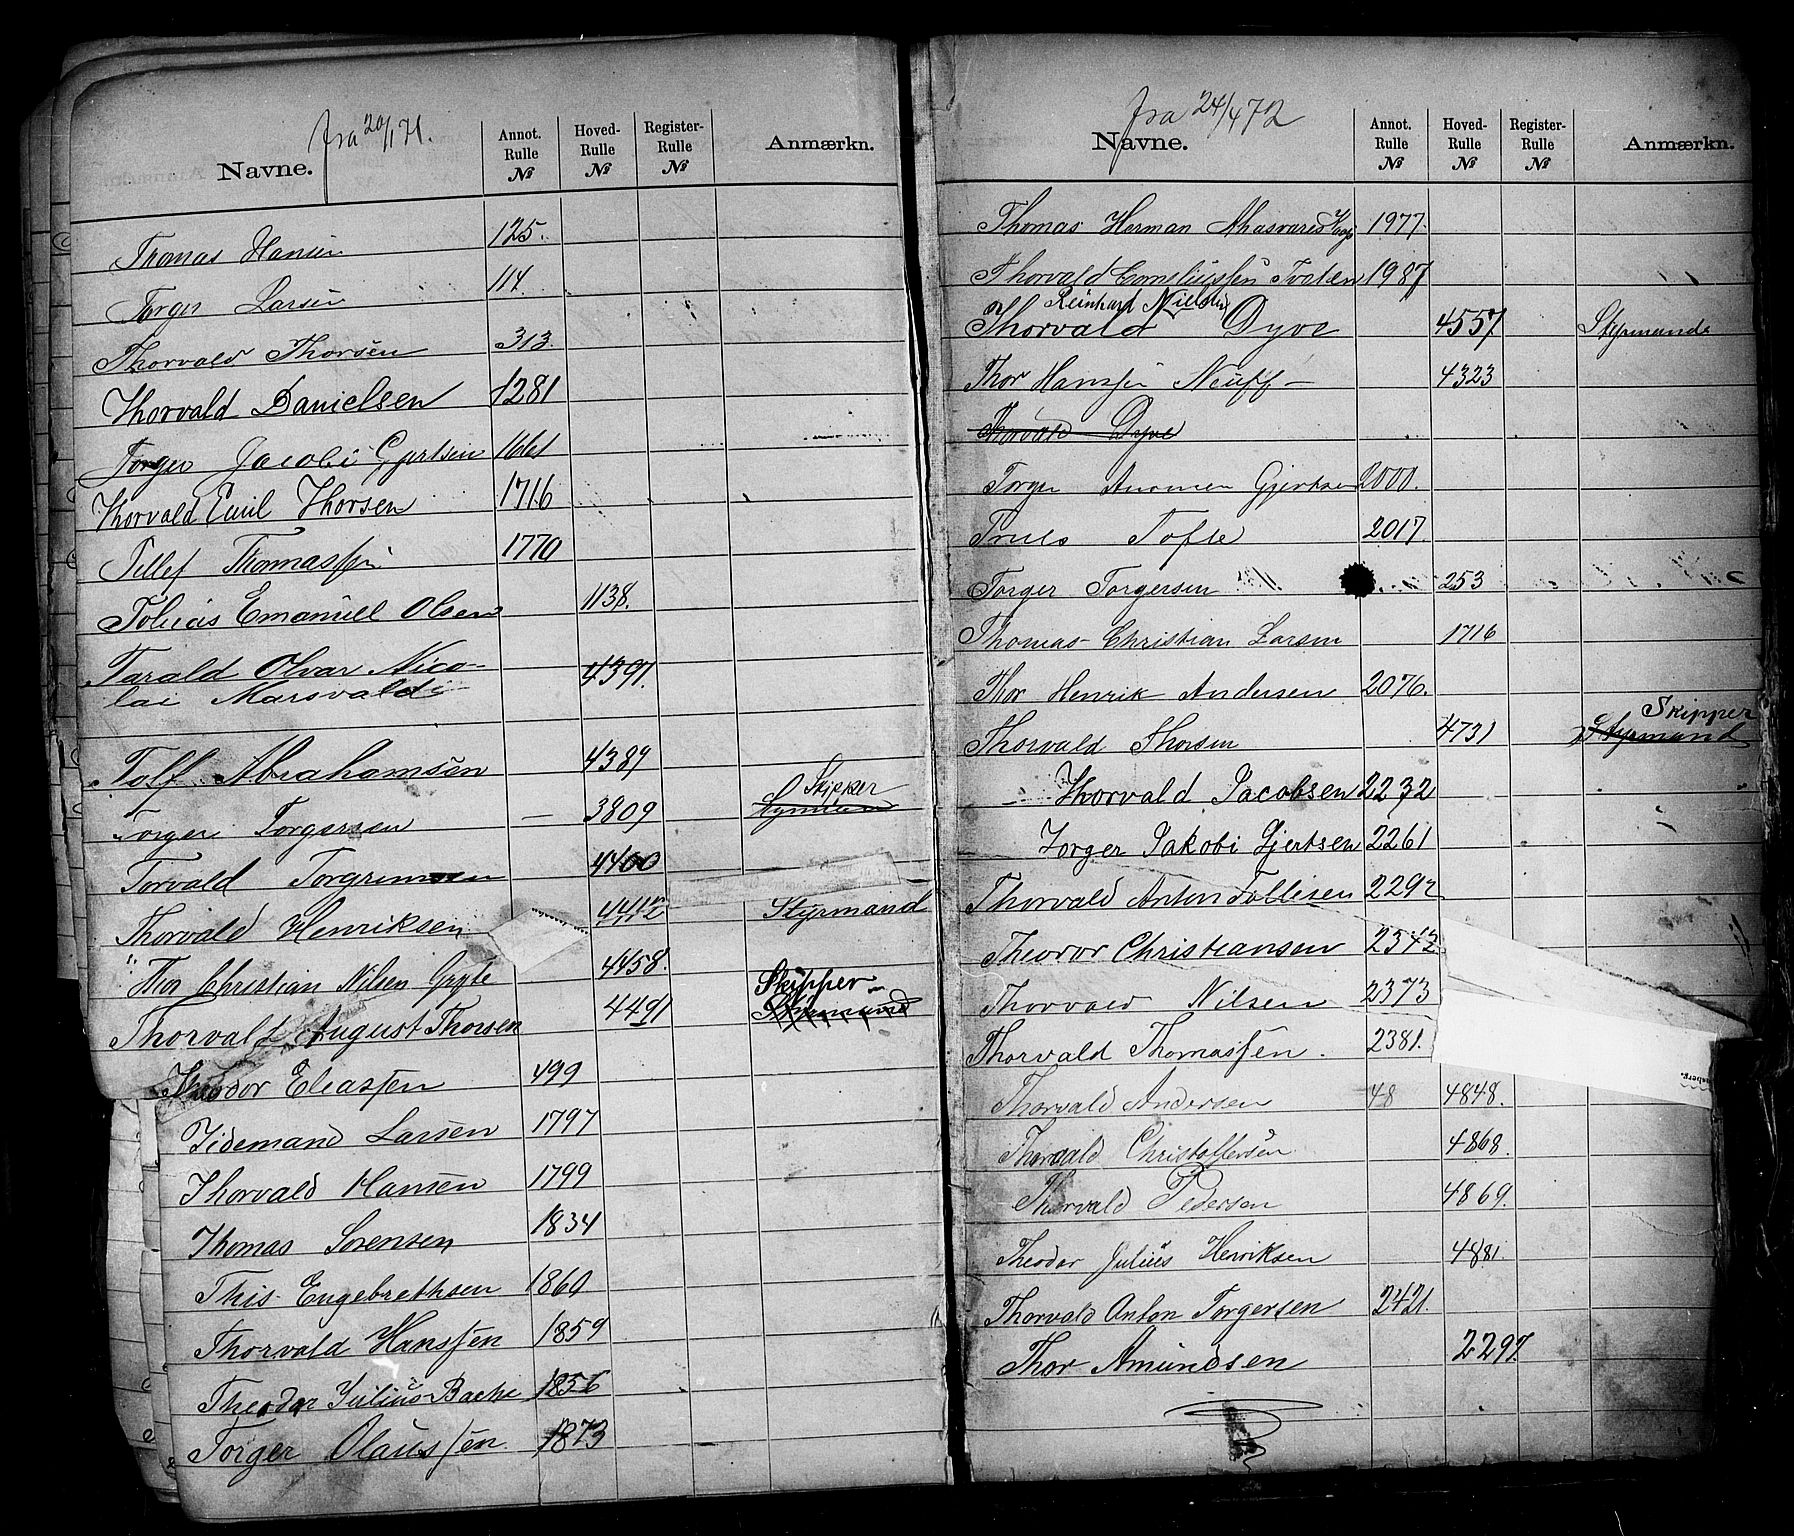 fra 20/1 71.
Navne.
Annot. Rulle №
Hoved- Rulle №
Register- Rulle №
Anmærkn.
Thomas Hansen 125.
Torger Larsen 114.
Thorvald Thorsen 313.
Thorvald Danielsen 1281
Torger Jacobi Gjertsen 1661
Thorvald Emil Thorsen 1716
Tellef Thomassen 1770
Tobias Emanuel Olsen 1138.
Tarald Olvar Nico-
lai Marsvaldi 4391.
Tolf Abrahamsen 4389
Skipper
Torger Torgersen — 3809
Torvald Torgrimsen 4400
Thorvald Henriksen 4412 Styrmand
Thor Christian Nilsen Gryte 4458.
Skipper
Thorvald August Thorsen 4491 Styrmand
Theodor Eleassen 499
Tidemand Larsen 1797
Thorvald Hansen 1799
Thomas Sorensen 1834
This Engebrethsen 1860
Thorvald Hanssen 1859
Theodor Julius Bache 1856
Torger Olaussen 1873
fra 24/4 72
Navne.
Annot. Rulle №
Hoved- Rulle №
Register- Rulle №
Anmærkn.
Thomas Herman 1977.
Thorvald Corneliussen 1987
Reinhard Nielsen
Thorvald Dyve 4557 Styrmand
Thor Hanssen Neuff — 4323
Thorvald Dyve
Torger Gjertsen 2000.
Truls Tofte 2017
Torger Torgersen 253
Thomas Christian Larsen 1716
Thor Henrik Andersen 2076.
Skipper
Thorvald Thorsen 4731 Styrmand
Thorvald Jacobsen 2232
Torger Jakobi Gjertsen 2261
Thorvald Anton Tollisen 2292
Theodor Christiansen 2342
Thorvald Nilsen 2373
Thorvald Thomassen. 2381.
Thorvald Andersen 48 4848.
Thorvald Christoffersen 4868.
Thorvald Pedersen 4869.
Theodor Julius Henriksen 4881.
Thorvald Anton Torgersen 2421.
Thor Amundsen 2297.